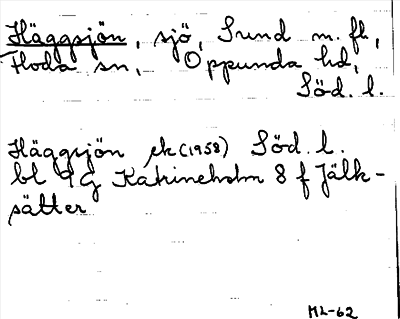 Häggsjön, sjö, Sund m. fl,
Floda sn, Oppunda hd,
Söd. l.
Häggsjön ek (1958) Söd. l.
bl 9 G Katrineholm 8 f Jälk-
sätter
ML-62